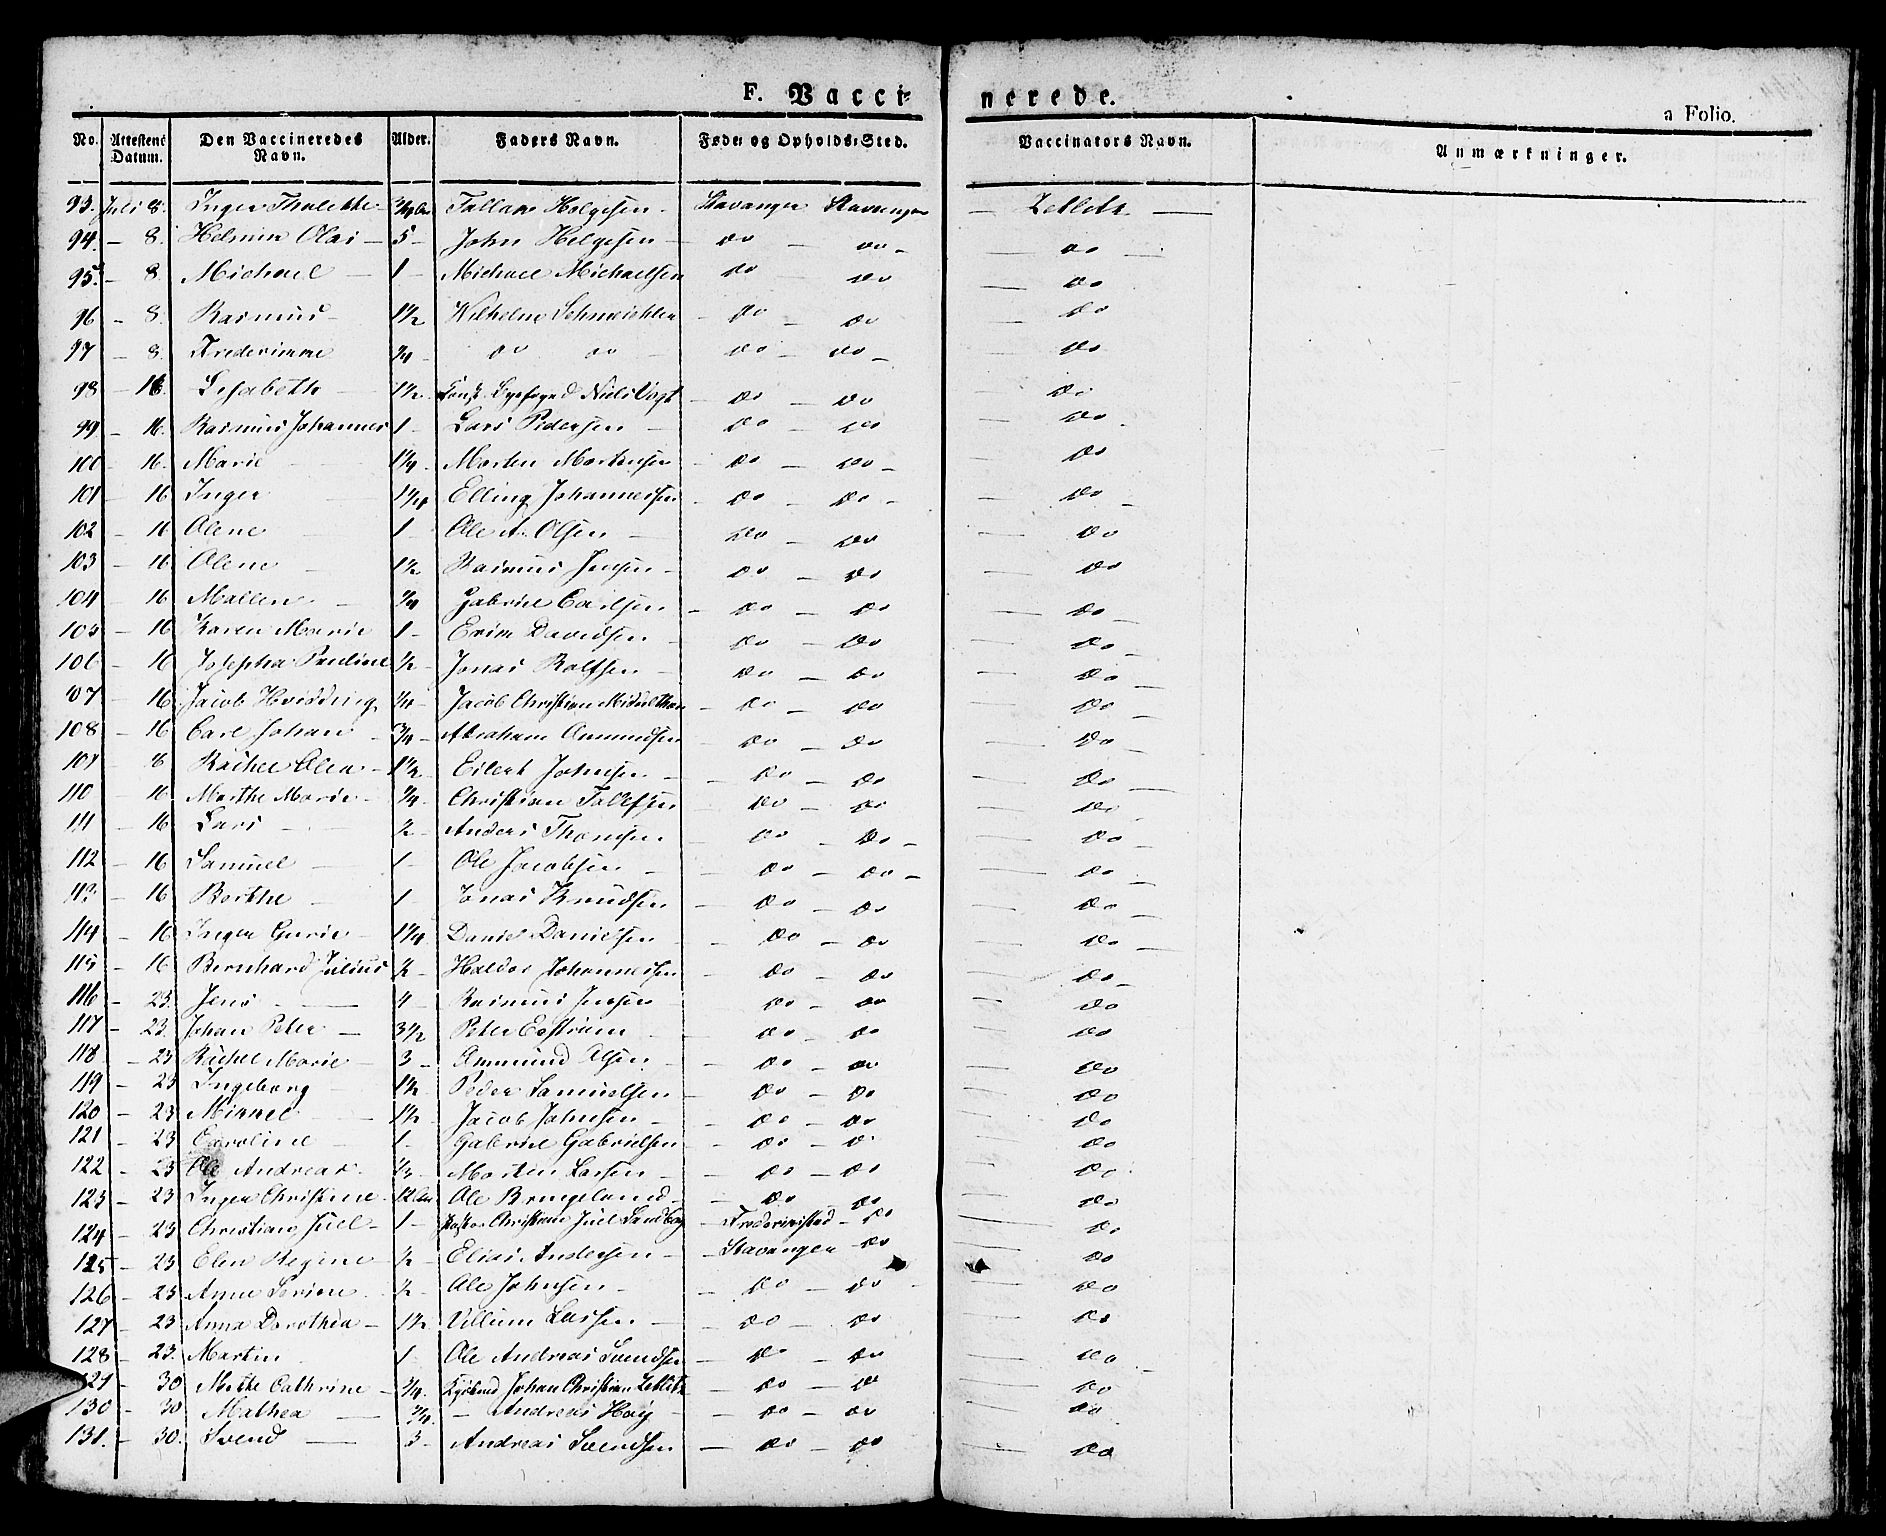 F. Vaccinerede.
a Folio.
No. Attestens Datum. Den Vaccineredes Navn. Alder. Faders Navn. Føde- og Opholds-Sted. Vaccinators Navn. Anmærkninger.
93. Juli 8. Inger Helgesen - Stavanger Stavanger — Zetlitz —
94. — 8. Helmin Olai — 5 — John Helgesen — do — do — — do —
95. — 8. Michael — 1 — Michael Michaelsen do do — do
96 — 8. Rasmus — 1 1/2 Wilhelm - do — do — do
97 — 8. 3/4 — do do — do — do — — do
98 — 16. Lisabeth — 1 1/2. Niels Vogt — do — do do
99 — 16. Rasmus Johannes 1 — Lars Pedersen — do — do do
100 — 16. Marie 1 1/4. Morten Mortensen — do — do — do
101 — 16 Inger Elling Johannessen — do — do — — do —
102 — 16 Olene 1 — Ole A. Olsen — do — do — do
103 — 16 Olene 1 1/2 Rasmus Jensen — do — do — do
104 — 16 Mallen — 3/4 Gabriel Carlsen — do — do — do —
105 — 16 Karen Marie 1 — Davidsen — do — do — do —
106 — 16 Josepha Pauline 1/2 — Jonas Rolfsen — do — do — do —
107 — 16 Jacob Hvidding 1/4 — Jacob Christian Middelthon — do — do — do —
108 — 16 Carl Johan — 3/4 — Abraham Ommundsen do — do — do —
109 8 Rachel Elen — 1 1/2 Eilert Johnsen — do — do — do —
110 — 16 Marthe Marie — 3/4. Christian Tollefsen do — do — do
111 — 16 Lars — 1/2 — Anders Thomsen do — do — — do —
112 — 16 Samuel — 1 — Ole Jacobsen — do — do — — do —
113 — 16 Berthe — 1 — Jonas Knudsen do — do — do —
114 — 16 Inger Gurie — 1 1/4 Daniel Danielsen — do — do — do —
115 — 16 Bernhard Julius 1/2 — Haldor Johannessen — do — do — do —
116 — 23. Jens — 4 — Rasmus Jensen do — do — do
117 — 23. Johan Peter — 3 1/2 Peter do — do — do
118 — 23 Marie — 3 — Ommund Olsen — do — do — do
119 — 23 Ingeborg 1 1/2 Peder Samuelsen — do — do — do
120 — 23 1 1/2 Jacob Johnsen — do — do — do
121 — 23 Caroline — 1 — Gabriel Gabrielsen — do — do — do
122 — 23 Ole Andreas. Martin Larsen — do — do — do
123 — 23 Inger Christine. Ole Bringeland — do do — do
124 — 23 Christian Juel — 1 — Christian Juel Sandberg — Frederiksstad — do do
125 — 23 Elen Regine 1/2 — Elias Andersen — — Stavanger — do do
126 — 23 Anne 1/2 — Ole Johnsen — — do — do — do
127 — 23 Anna Dorothea — 1 1/2 Villum Larsen — — do — do do
128 — 23. Martin 1 — Ole Andreas Svendsen — do — do do
129 — 30 Mette Cathrine — 3/4. Johan Christian Zetlitz — do — do do
130 — 30 Mathea — 3/4. — Andreas — do — do do
131. — 30. Svend — 3 — Andreas Svendsen — do — do do